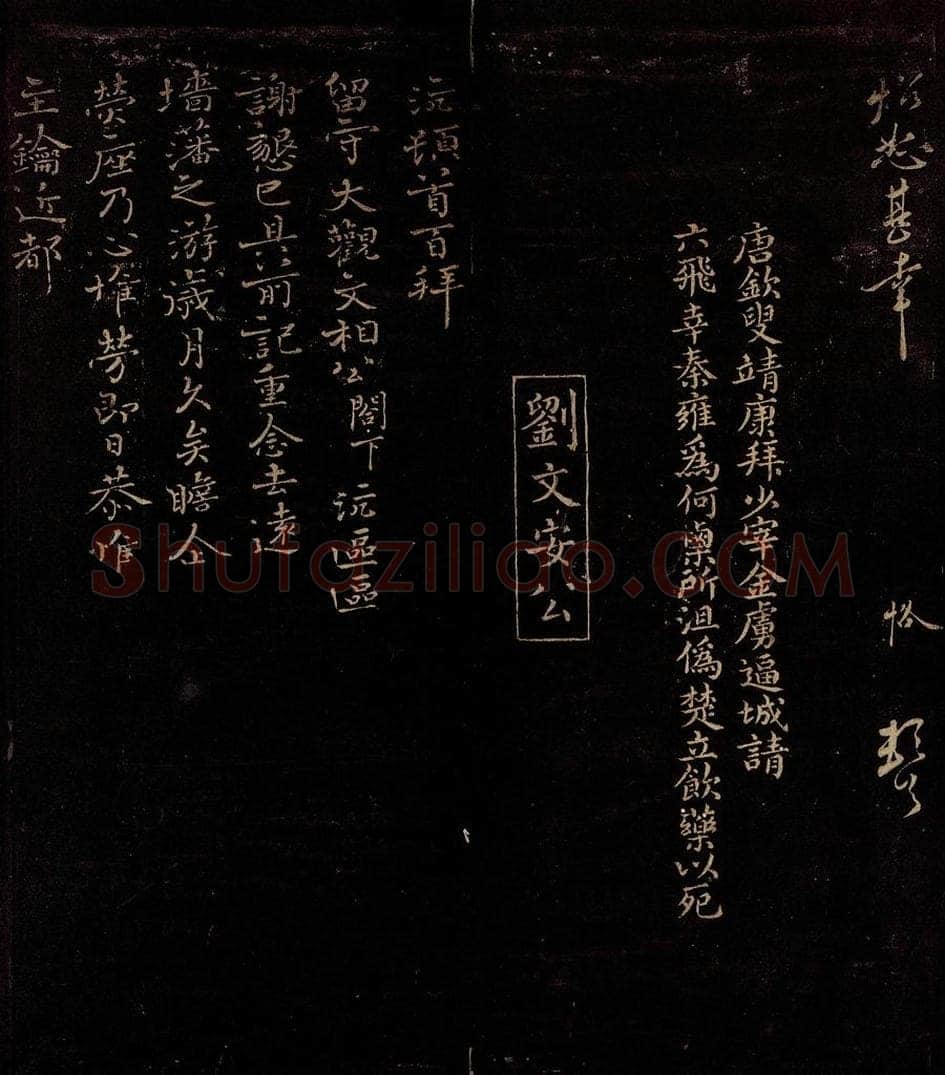 恕甚幸
恪
唐欽叟靖康拜少宰金虜逼城請
六飛幸秦雍爲何㮚所沮僞楚立飲藥以死
劉文安公
沆頓首百拜
留守大觀文相公閤下沆區區
謝懇已具前記重念去遠
墻藩之游歲月久矣瞻企
熒座乃心增勞即日恭惟
主鑰近都
Shufaziliao.COM